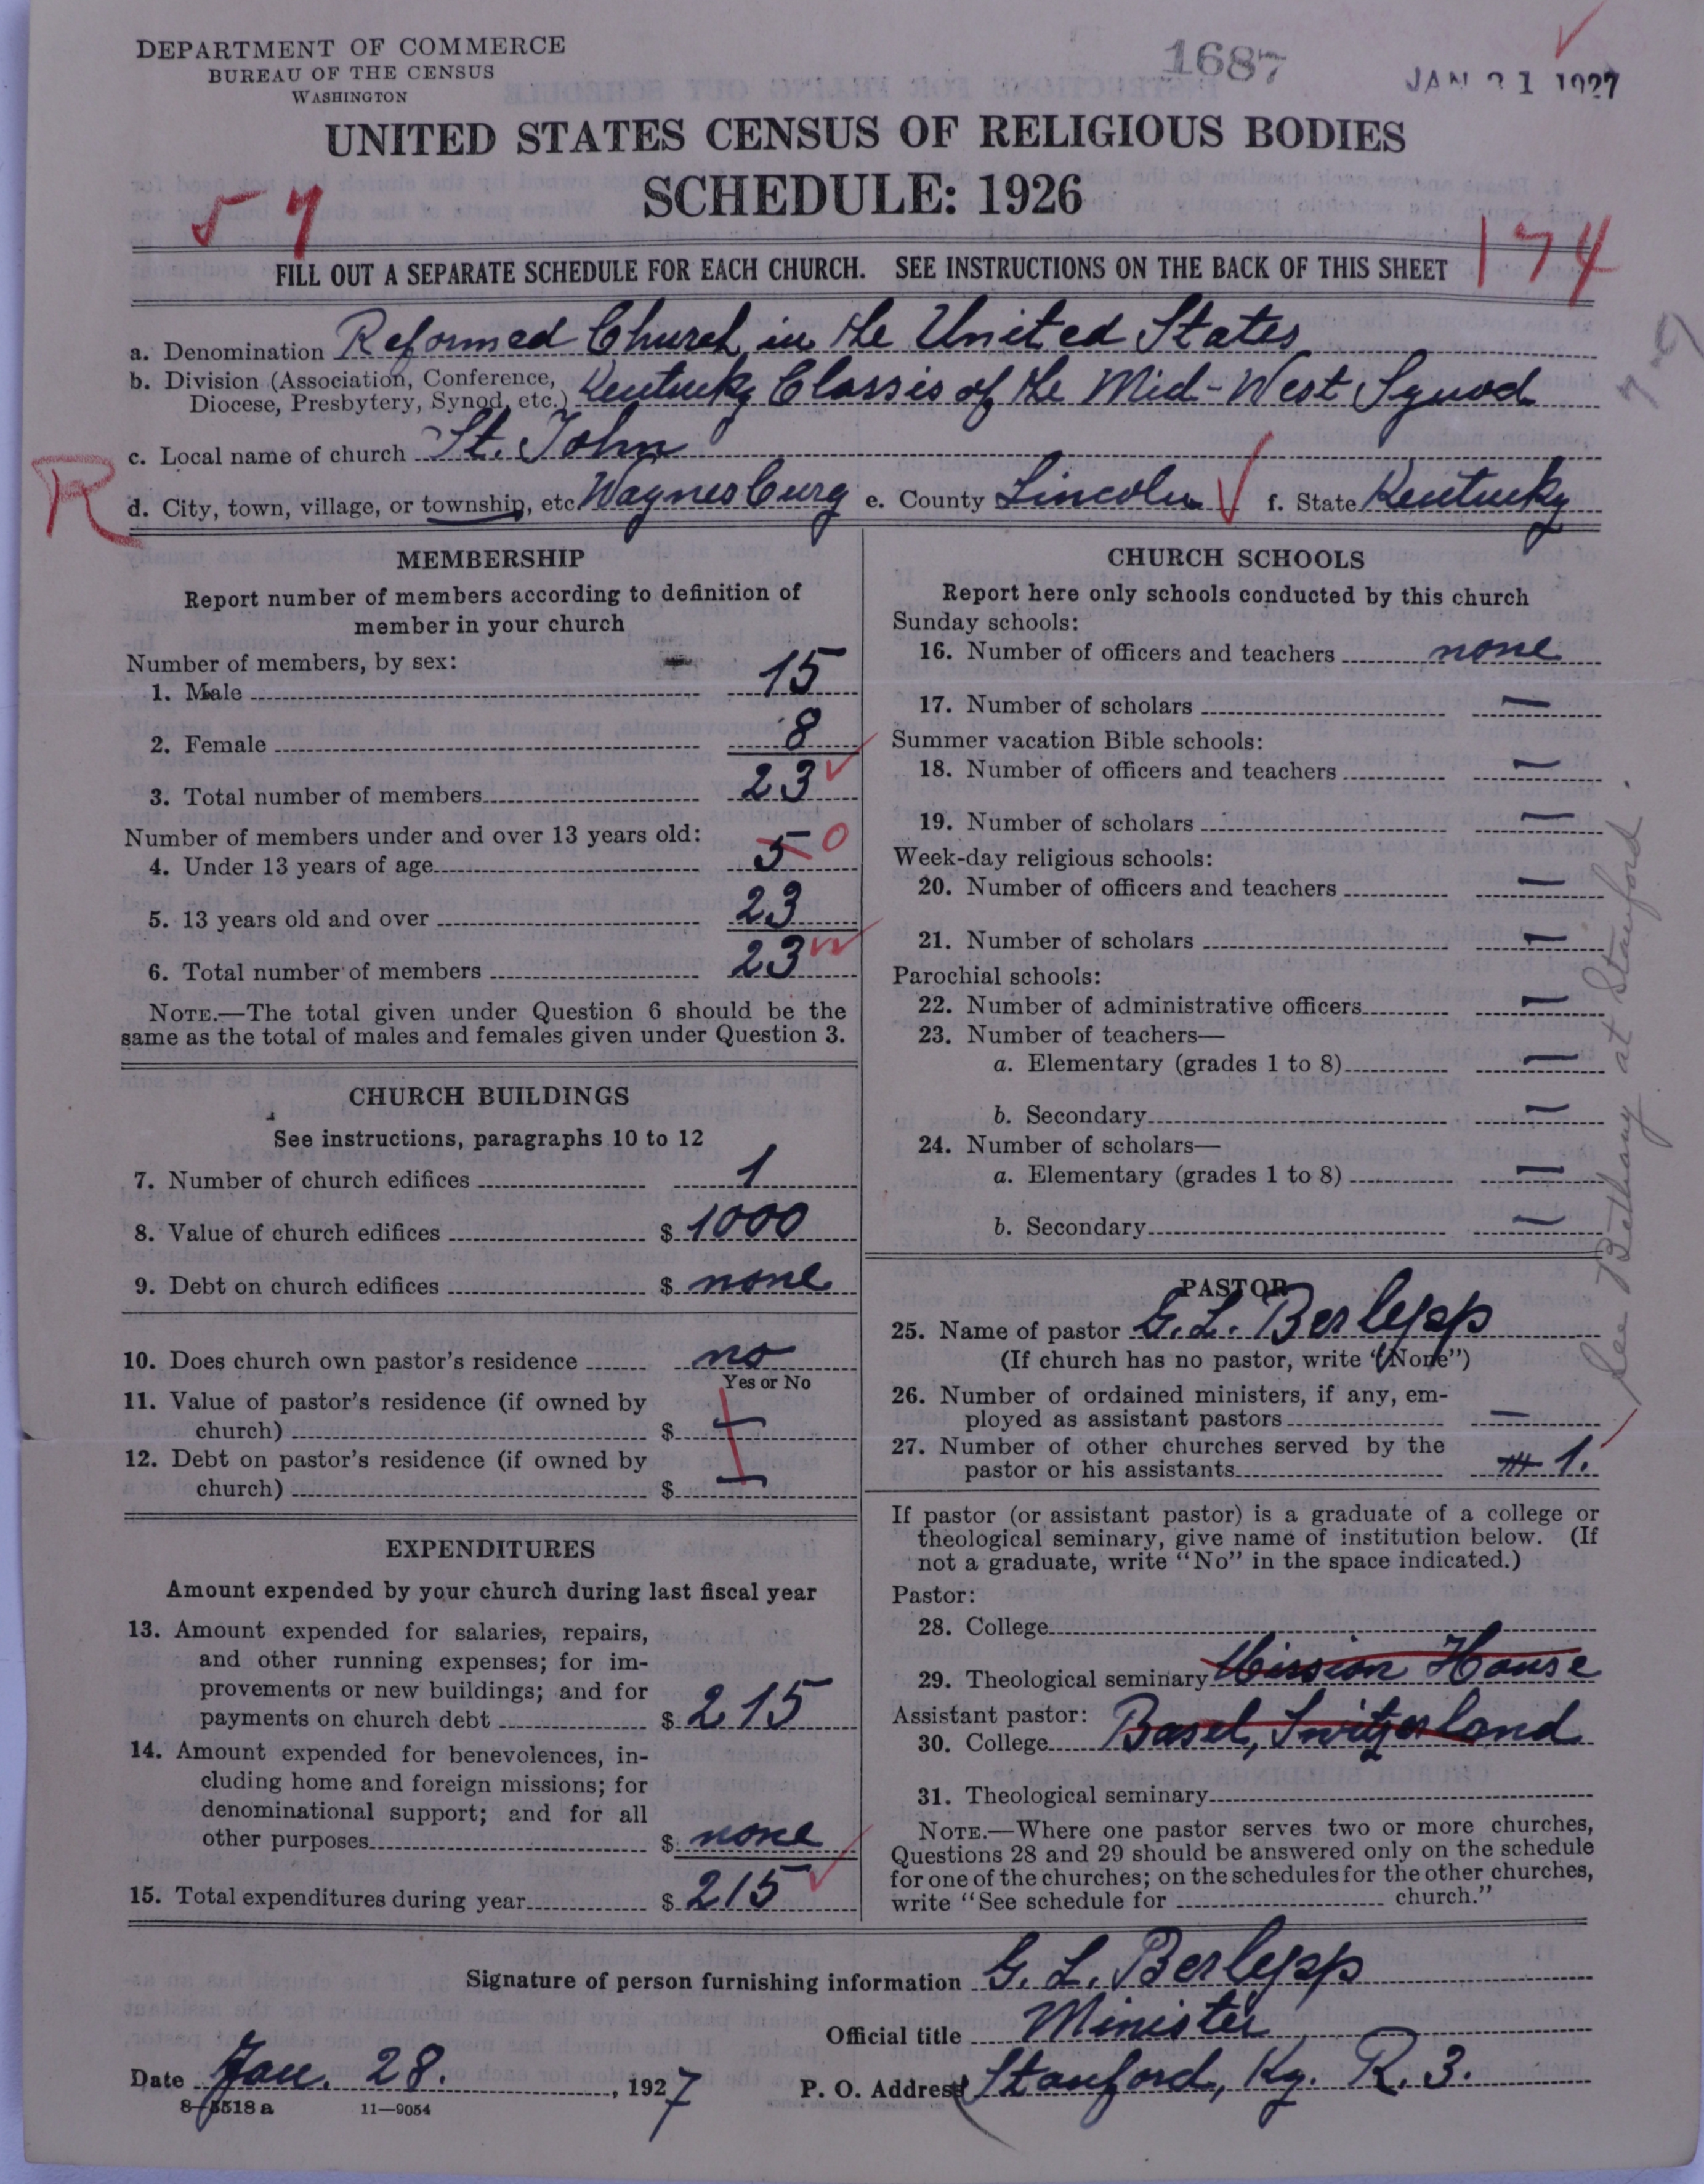 DEPARTMENT OF COMMERCE
BUREAU OF THE CENSUS
WASHINGTON
1687
JAN 31 1927
UNITED STATES CENSUS OF RELIGIOUS BODIES
SCHEDULE: 1926
57
174
FILL OUT A SEPARATE SCHEDULE FOR EACH CHURCH. SEE INSTRUCTIONS ON THE BACK OF THIS SHEET
a. Denomination Reformed Church in the United States
b. Division (Association, Conference, Diocese, Presbytery, Synod, etc.) Kentucky Classis of the Mid-West Synod
c. Local name of church St. John
R
d. City, town, village, or township, etc. Waynesburg e. County Lincoln f. State Kentucky
MEMBERSHIP
Report number of members according to definition of
member in your church
Number of members, by sex:
1. Male 15
2. Female 8
3. Total number of members 23
Number of members under and over 13 years old:
4. Under 13 years of age 5 0
5. 13 years old and over 23
6. Total number of members 23
NOTE.—The total given under Question 6 should be the
same as the total of males and females given under Question 3.
CHURCH BUILDINGS
See instructions, paragraphs 10 to 12
7. Number of church edifices 1
8. Value of church edifices $ 1000
9. Debt on church edifices $ none
10. Does church own pastor's residence no
Yes or No
11. Value of pastor's residence (if owned by
church) $ —
12. Debt on pastor's residence (if owned by
church) $ —
EXPENDITURES
Amount expended by your church during last fiscal year
13. Amount expended for salaries, repairs,
and other running expenses; for im-
provements or new buildings; and for
payments on church debt $ 215
14. Amount expended for benevolences, in-
cluding home and foreign missions; for
denominational support; and for all
other purposes $ none
15. Total expenditures during year $ 215
CHURCH SCHOOLS
Report here only schools conducted by this church
Sunday schools:
16. Number of officers and teachers none
17. Number of scholars —
Summer vacation Bible schools:
18. Number of officers and teachers —
19. Number of scholars —
Week-day religious schools:
20. Number of officers and teachers —
21. Number of scholars —
Parochial schools:
22. Number of administrative officers —
23. Number of teachers—
a. Elementary (grades 1 to 8) —
b. Secondary —
24. Number of scholars—
a. Elementary (grades 1 to 8) —
b. Secondary —
PASTOR
25. Name of pastor G. L. Berlepp
(If church has no pastor, write "None")
26. Number of ordained ministers, if any, em-
ployed as assistant pastors —
27. Number of other churches served by the
pastor or his assistants 1.
If pastor (or assistant pastor) is a graduate of a college or
theological seminary, give name of institution below. (If
not a graduate, write "No" in the space indicated.)
Pastor:
28. College
29. Theological seminary Mission House
Assistant pastor:
30. College Basel, Switzerland
31. Theological seminary
NOTE.—Where one pastor serves two or more churches,
Questions 28 and 29 should be answered only on the schedule
for one of the churches; on the schedules for the other churches,
write "See schedule for church."
See Bethany at Stanford.
Signature of person furnishing information G. L. Berlepp
Official title Minister
Date Jan. 28. , 1927
P. O. Address Stanford, Ky. R. 3.
8—5518 a 11—9054